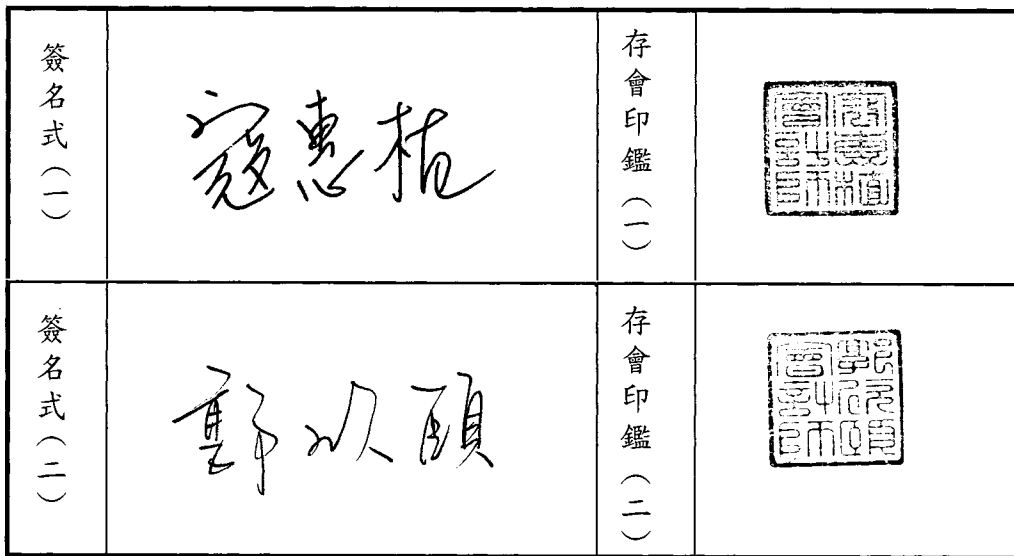 簽名式(一)
寇惠植
存會印鑑(一)
寇惠植
會計師
簽名式(二)
郭欣頤
存會印鑑(二)
郭欣頤
會計師